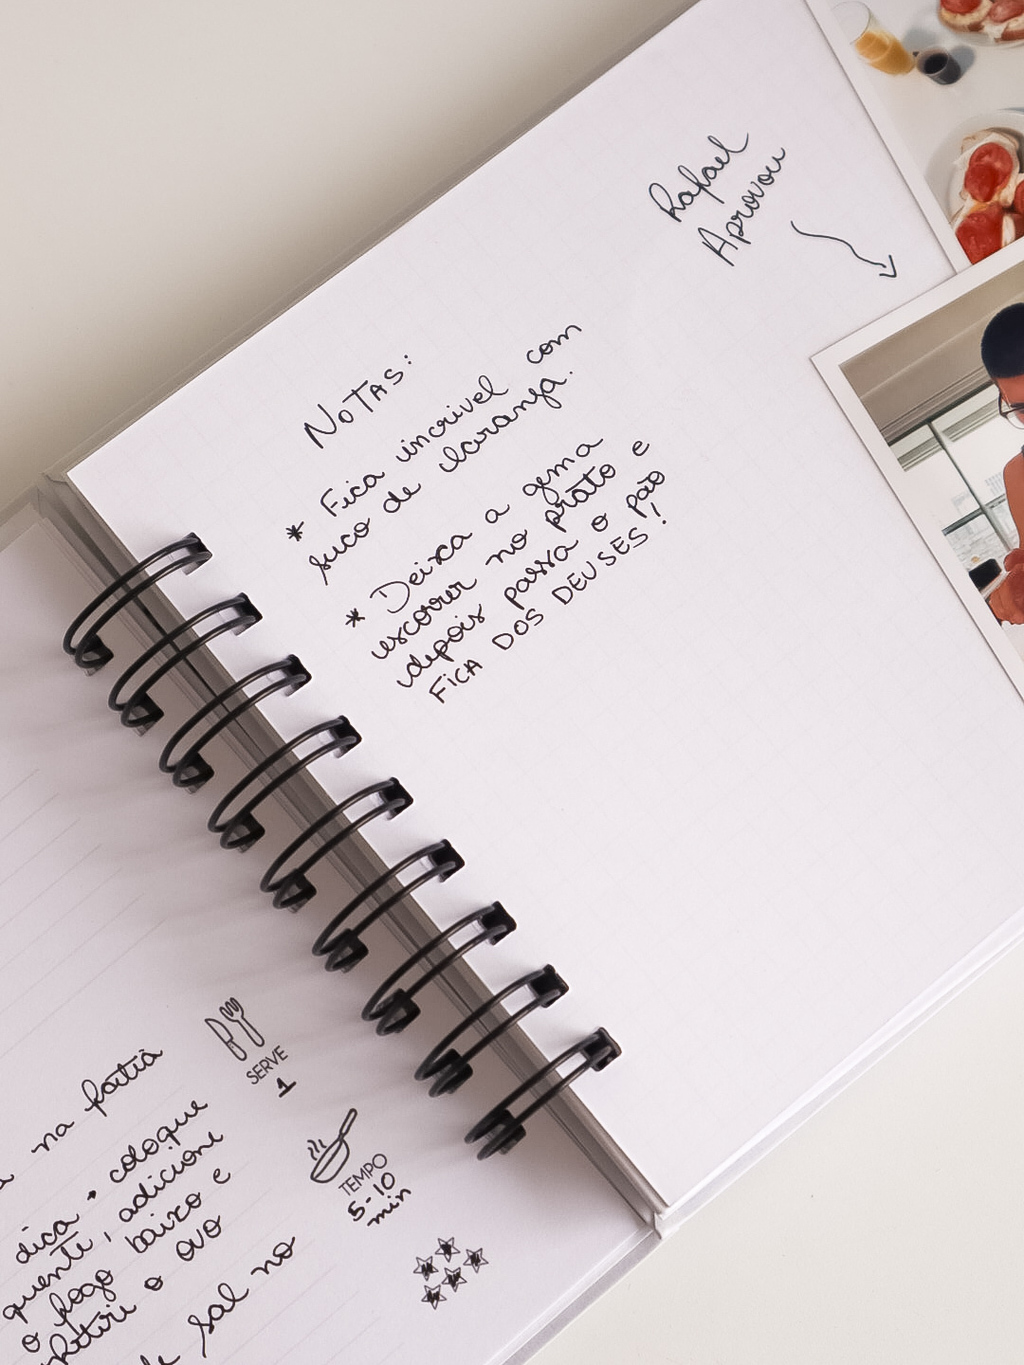 Rafael
Aprovou
NOTAS:
* Fica incrivel com
suco de laranja.
* Deixa a gema
escorrer no prato e
depois passa o pão
FICA DOS DEUSES!
SERVE
1
TEMPO
5-10
min
na fatia
dica • coloque
quente, adicione
o fogo baixo e
retire o ovo
de sal no